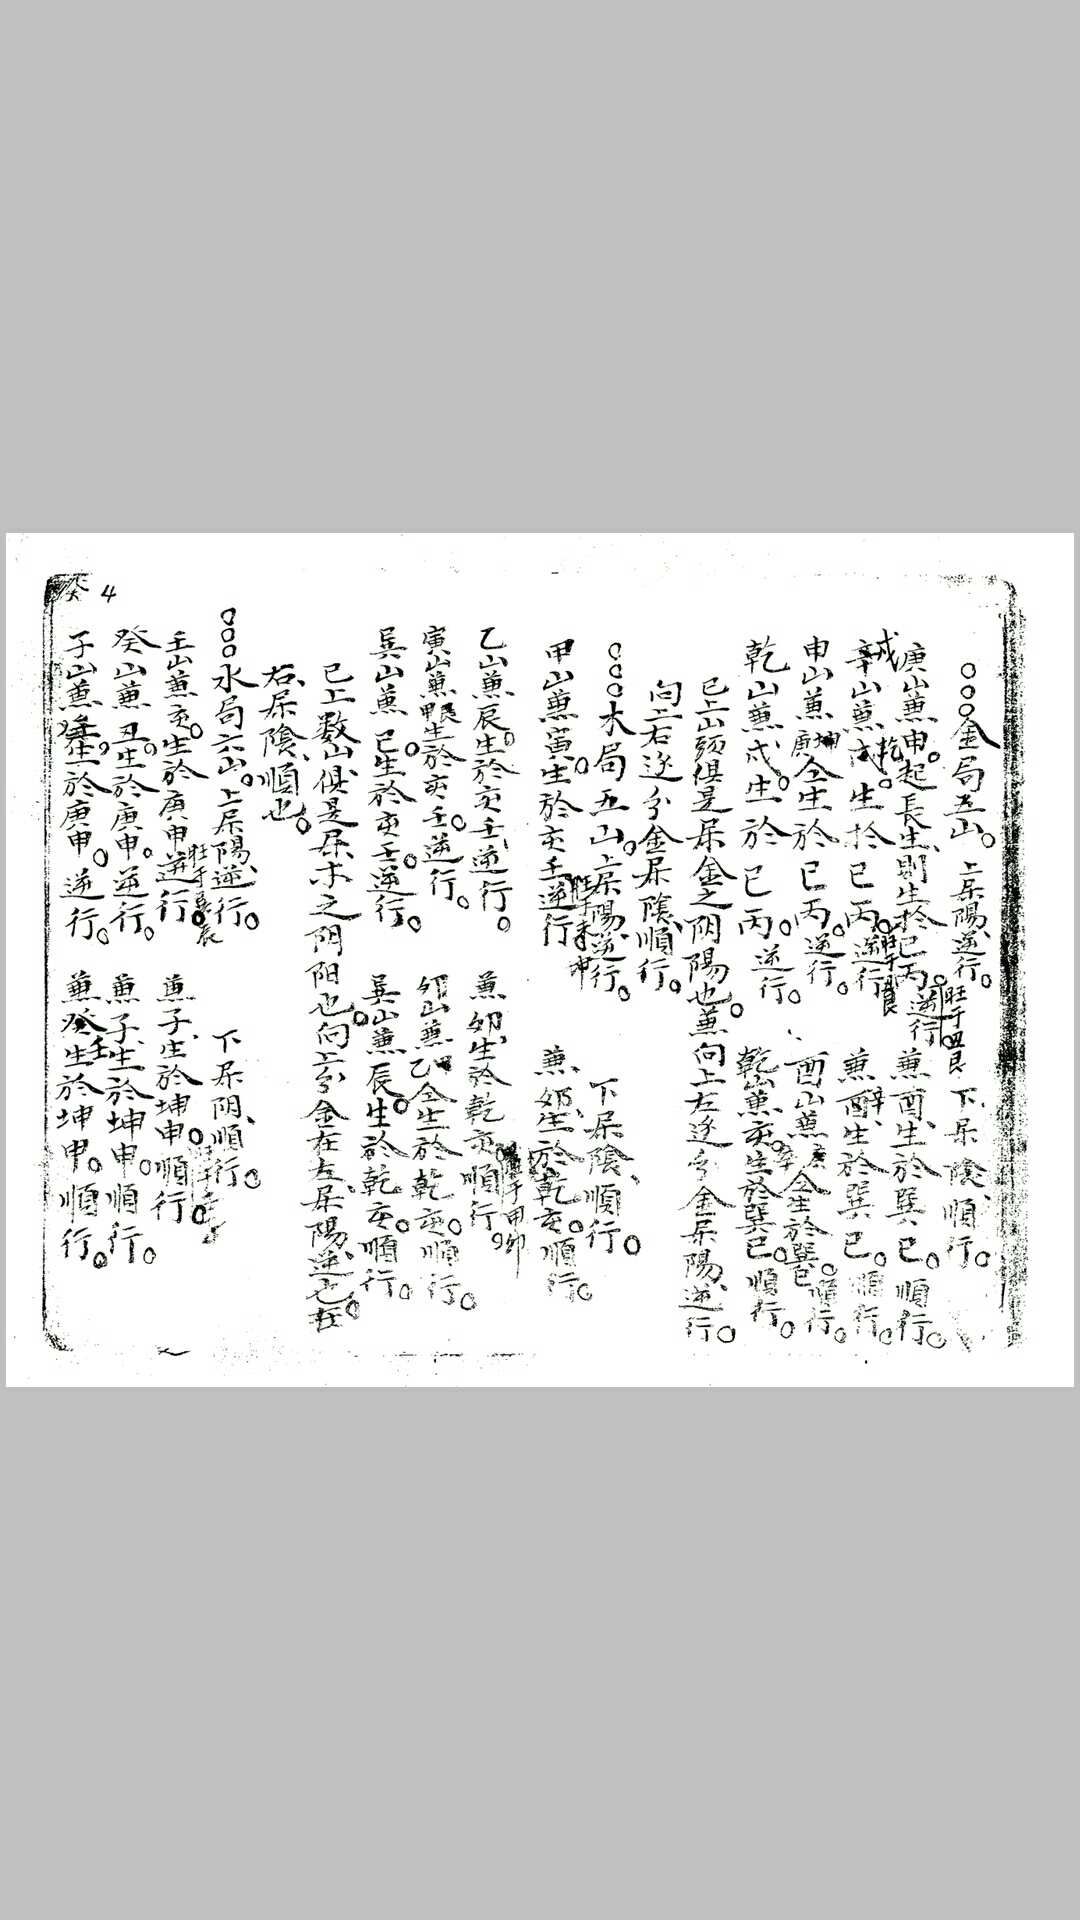 癸 4
○○○金局五山。上屎陽、逆行。下屎陰、順行。
庚山兼申。起長生、則生於巳丙。逆行 旺于丑艮 兼酉、生於巽巳。順行。
辛山兼戌。生於巳丙。逆行 兼酉、生於巽巳。順行。
申山兼庚坤仝生於巳丙。逆行。酉山兼辛庚仝生於巽巳。順行。
乾山兼戌。生於巳丙。逆行。乾山兼亥。生於巽巳。順行。
已上山頭俱是屎金之阴陽也。兼向上左逐分金屎陽、逆行。
向上右逐分金屎陰、順行。
○○○木局五山。上屎陽、逆行。下屎陰、順行。
甲山兼寅。生於亥壬逆行 旺于未坤 兼夘、生於乾亥。順行。
乙山兼辰。生於亥壬逆行。兼夘、生於乾亥。順行。
寅山兼甲艮生於亥壬。逆行。夘山兼乙甲仝生於乾亥。順行。
巽山兼巳。生於亥壬。逆行。巽山兼辰。生於乾亥。順行。
已上數山俱是屎木之阴阳也。向上分金在左屎陽、逆也。在
右屎陰、順也。
○○○水局六山。上屎陽、逆行。下屎阴、順行。
壬山兼亥。生於庚申。逆行。兼子、生於坤申。順行。
癸山兼丑。生於庚申。逆行。兼子、生於坤申。順行。
子山兼壬生於庚申。逆行。兼癸生於坤申。順行。